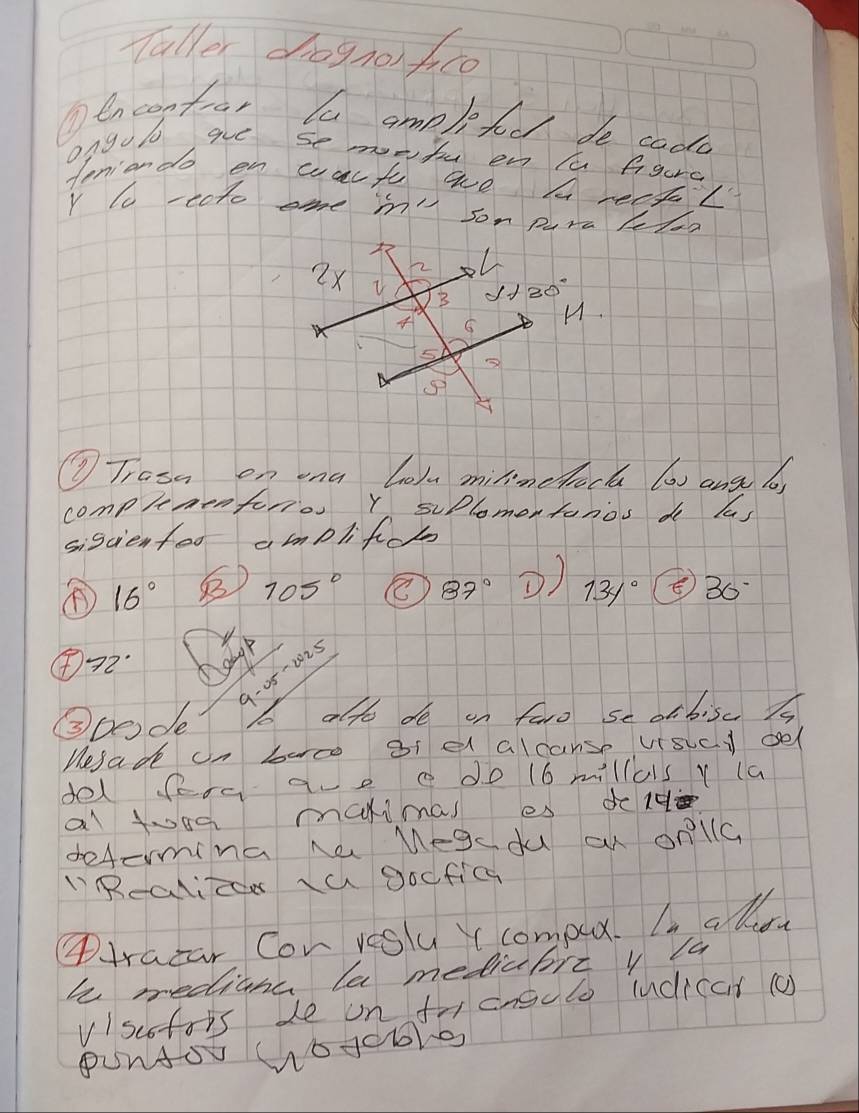 Taller diagnostico
① Encontrar la amplitud de cada
angulo que se muestra en la figura
teniendo en cuenta que la recta "L"
Y la recta eme "m" son paralelas
2x 1 2 L
3 x+30°
4 6 M.
5 7
8
② Trasa en una hoja milimetrada los angulos
complementarios Y suplementarios de las
siguientes amplitudes
Ⓐ 16° Ⓑ 105° Ⓒ 87° D) 134° Ⓔ 36°
Ⓕ 72°
9-05-2025
③ Desde lo alto de un faro se dibisa la
llegada un barco si el alcanse visual del
del faro que e de 16 millas y la
al tura maximas es de 14
determina la llegada an orilla
"Realizar la gocfica
④ trazar Con regla Y compax. la altura
la mediana la mediatriz y la
visectris de un triangulo indicar los
puntos notables